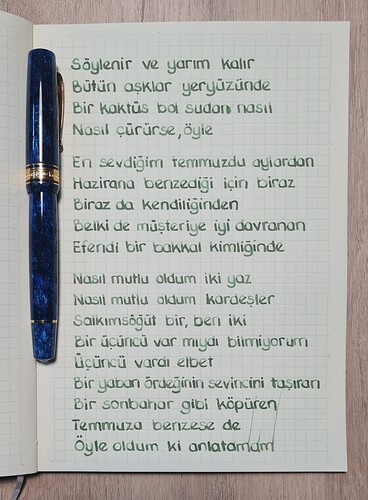 Söylenir ve yarım kalır
Bütün aşklar yeryüzünde
Bir kaktüs bol sudan nasıl
Nasıl çürürse, öyle
En sevdiğim temmuzdu aylardan
Hazirana benzediği için biraz
Biraz da kendiliğinden
Belki de müşteriye iyi davranan
Efendi bir bakkal kimliğinde
Nasıl mutlu oldum iki yaz
Nasıl mutlu oldum kardeşler
Salkımsöğüt bir, ben iki
Bir üçüncü var mıydı bilmiyorum
Üçüncü vardı elbet
Bir yaban ördeğinin sevincini taşıran
Bir sonbahar gibi köpüren
Temmuza benzese de
Öyle oldum ki anlatamam